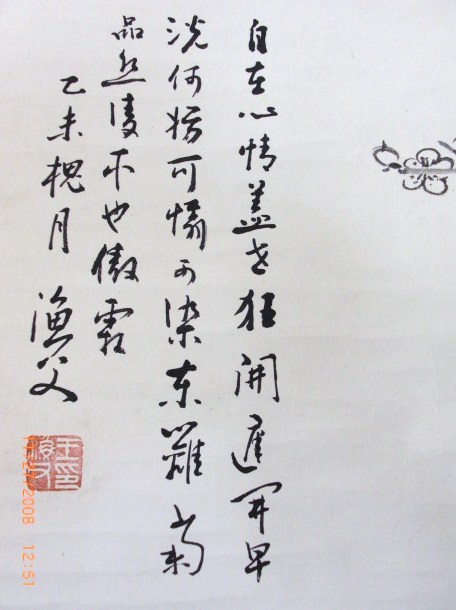 自在心情蓋世狂開遲開早
何妨可憐可染東籬菊
品不也傲霜
乙未槐月 漁父
王漁父印
2008 12:51